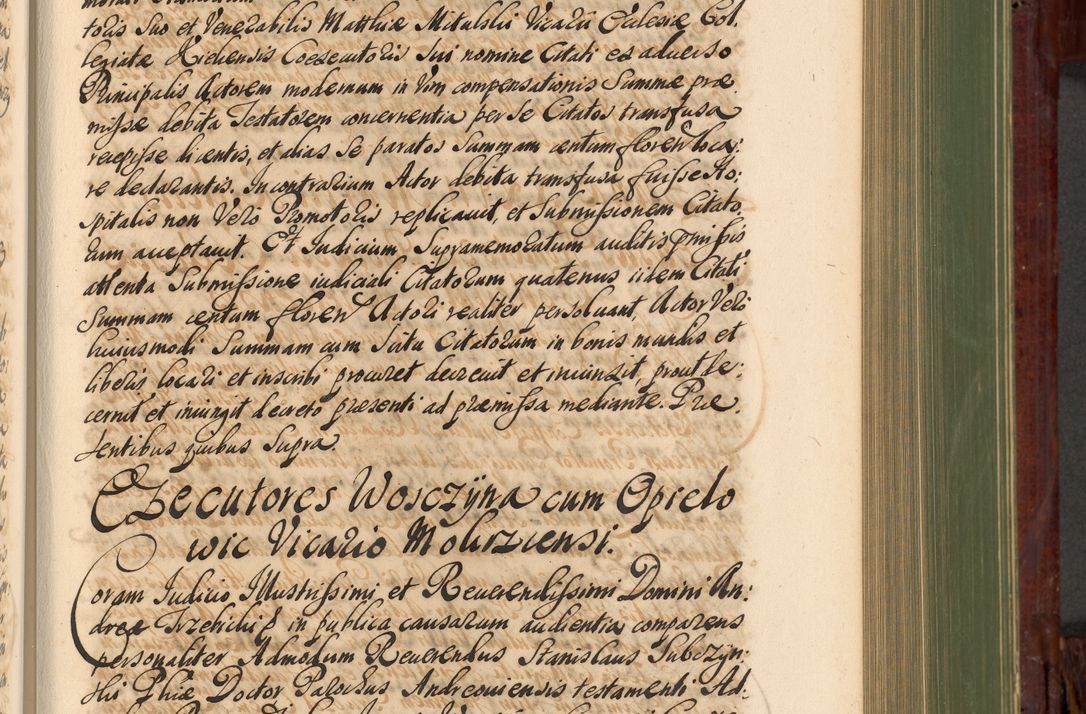 toris suo et Venerabilis Matthiæ Mitulskii Vicarii Ecclesiæ Col,
legiatæ Kielcensis Coexecutoris sui nomine Citati ex adverso
Principalis Actorem modernum in Vim compensationis Summæ præ,
missæ debita Testatorem concernentia per se Citatos transfusa
recepisse dicentis, et alias se paratos summam centum floren loca:
re declarantis. In contrarium Actor debita transfusa fuisse Ho:
spitalis non Vero Promotoris replicavit, et submissionem Citato,
rum acceptavit. Et Judicium Supramemoratum auditis præmissis
attenta Submissione iudiciali Citatorum quatenus iidem Citati
Summam centum floren Actori realiter persoluant, Actor Vero
huiusmodi Summam cum scitu Citatorum in bonis mundis et
liberis locari et inscribi procuret decrevit et iniunxit, prout de:
cernit et iniungit decreto præsenti ad præmissa mediante. Præ,
sentibus quibus supra.
Executores Wosczÿna cum Opielo
wic Vicario Molirzicensi.
Coram Judicio Illustrissimi et Reverendissimi Domini An:
dreæ Trzebicki in publica causarum audientia comparens
personaliter Admodum Reuerendus Stanislaus Subczyn:
ski Phiæ Doctor Parochus Andreoviensis testamenti Ad.